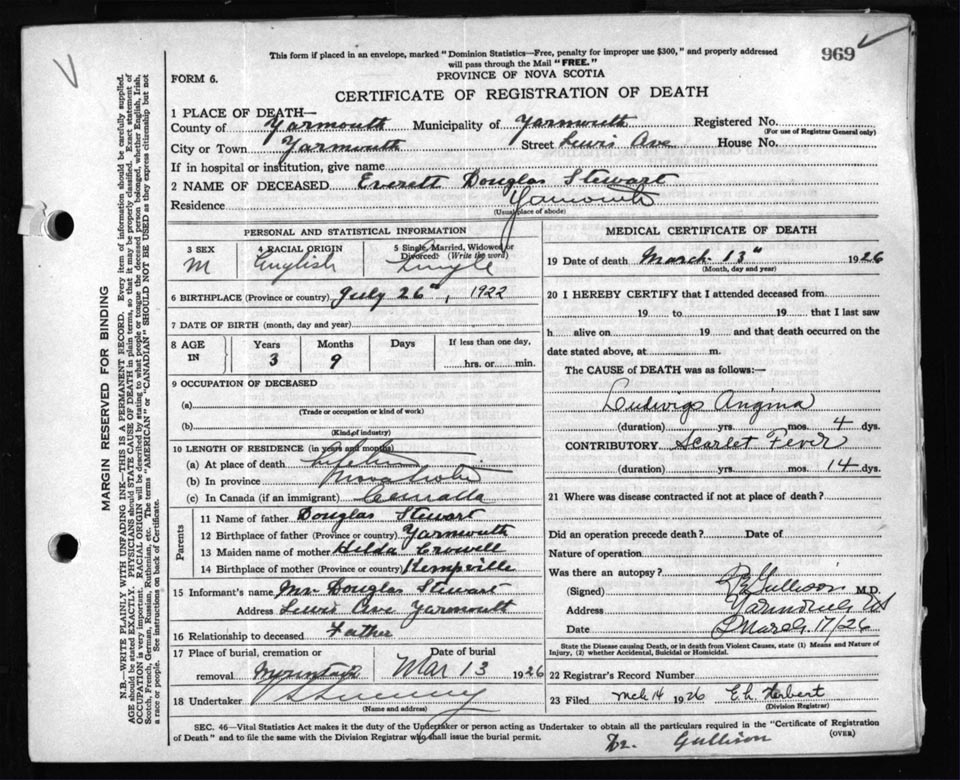 This form if placed in an envelope, marked "Dominion Statistics—Free, penalty for improper use $300," and properly addressed
will pass through the Mail "FREE."
969
FORM 6.
PROVINCE OF NOVA SCOTIA
CERTIFICATE OF REGISTRATION OF DEATH
MARGIN RESERVED FOR BINDING
N.B.—WRITE PLAINLY WITH UNFADING INK—THIS IS A PERMANENT RECORD. Every item of information should be carefully supplied.
AGE should be stated EXACTLY. PHYSICIANS should STATE CAUSE OF DEATH in plain terms, so that it may be properly classified. Exact statement of
OCCUPATION is very important. RACIAL ORIGIN will be described by stating to what people or tongue the deceased person belonged, whether English, Irish,
Scotch, French, German, Russian, Ruthenian, etc. The terms "AMERICAN" or "CANADIAN" SHOULD NOT BE USED as they express citizenship but not
a race or people. See instructions on back of Certificate.
1 PLACE OF DEATH—
County of Yarmouth Municipality of Yarmouth Registered No.
(For use of Registrar General only)
City or Town Yarmouth Street Lewis Ave House No.
If in hospital or institution, give name
2 NAME OF DECEASED Everett Douglas Stewart
Residence Yarmouth
(Usual place of abode)
PERSONAL AND STATISTICAL INFORMATION
3 SEX 4 RACIAL ORIGIN 5 Single, Married, Widowed or
Divorced? (Write the word)
M English Single
6 BIRTHPLACE (Province or country) July 26th, 1922
7 DATE OF BIRTH (month, day and year)
8 AGE IN Years Months Days If less than one day,
3 9 hrs. or min.
9 OCCUPATION OF DECEASED
(a)
(Trade or occupation or kind of work)
(b)
(Kind of industry)
10 LENGTH OF RESIDENCE (in years and months)
(a) At place of death
(b) In province Nova Scotia
(c) In Canada (if an immigrant) Canada
Parents
11 Name of father Douglas Stewart
12 Birthplace of father (Province or country) Yarmouth
13 Maiden name of mother Hilda Crowell
14 Birthplace of mother (Province or country) Kempville
15 Informant's name Mr Douglas Stewart
Address Lewis Ave Yarmouth
16 Relationship to deceased Father
17 Place of burial, cremation or Date of burial
removal Mountain Mar 13 1926
18 Undertaker
(Name and address)
MEDICAL CERTIFICATE OF DEATH
19 Date of death March 13th 1926
(Month, day and year)
20 I HEREBY CERTIFY that I attended deceased from
19 to 19 that I last saw
h alive on 19 and that death occurred on the
date stated above, at m.
The CAUSE of DEATH was as follows:—
Ludwigs Angina
(duration) yrs. mos. 4 dys.
CONTRIBUTORY Scarlet Fever
(duration) yrs. mos. 14 dys.
21 Where was disease contracted if not at place of death?
Did an operation precede death? Date of
Nature of operation
Was there an autopsy?
(Signed) Gullison M.D.
Address Yarmouth NS
Date March 17/26
State the Disease causing Death, or in death from Violent Causes, state (1) Means and Nature of
Injury, (2) whether Accidental, Suicidal or Homicidal.
22 Registrar's Record Number
23 Filed Mch 14 1926 E. L. Herbert
(Division Registrar)
SEC. 46—Vital Statistics Act makes it the duty of the Undertaker or person acting as Undertaker to obtain all the particulars required in the "Certificate of Registration
of Death" and to file the same with the Division Registrar who shall issue the burial permit.
(OVER)
Dr. Gullison